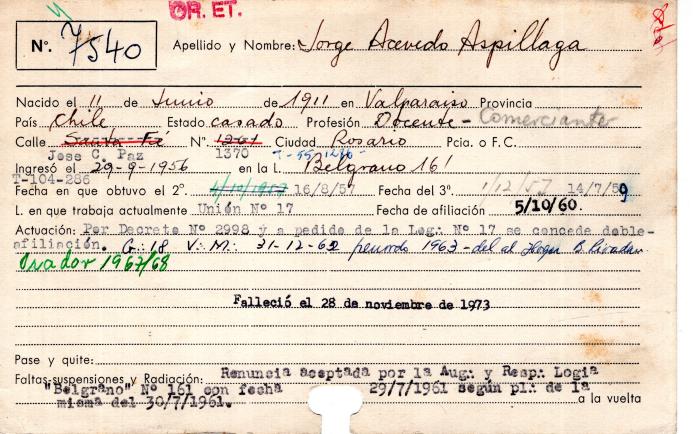 OR. ET.
N°. 7540
Apellido y Nombre: Jorge Acevedo Aspillaga
Nacido el 11 de Junio de 1911 en Valparaiso Provincia
País Chile Estado casado Profesión Docente - Comerciante
Calle Santa Fé N°. 1261 Ciudad Rosario Pcia. o F.C.
Jose C. Paz 1370
Ingresó el 29-9-1956 en la L. Belgrano 161
T-104-286
Fecha en que obtuvo el 2°. 16/8/57 Fecha del 3°. 1/12/57 14/7/59
L. en que trabaja actualmente Unión Nº 17 Fecha de afiliación 5/10/60.
Actuación: Per Decreto Nº 2998 y a pedido de la Log∴ Nº 17 se concede doble-
afiliación. G∴ 18 V∴ M∴ 31-12-62 periodo 1963 - del al Hogar B. Rivadav
Orador 1967/68
Falleció el 28 de noviembre de 1973
Pase y quite:
Faltas-suspensiones y Radiación: Renuncia aceptada por la Aug∴ y Resp∴ Logia
"Belgrano" Nº 161 con fecha 29/7/1961 según pl∴ de la
misma del 30/7/1961. a la vuelta